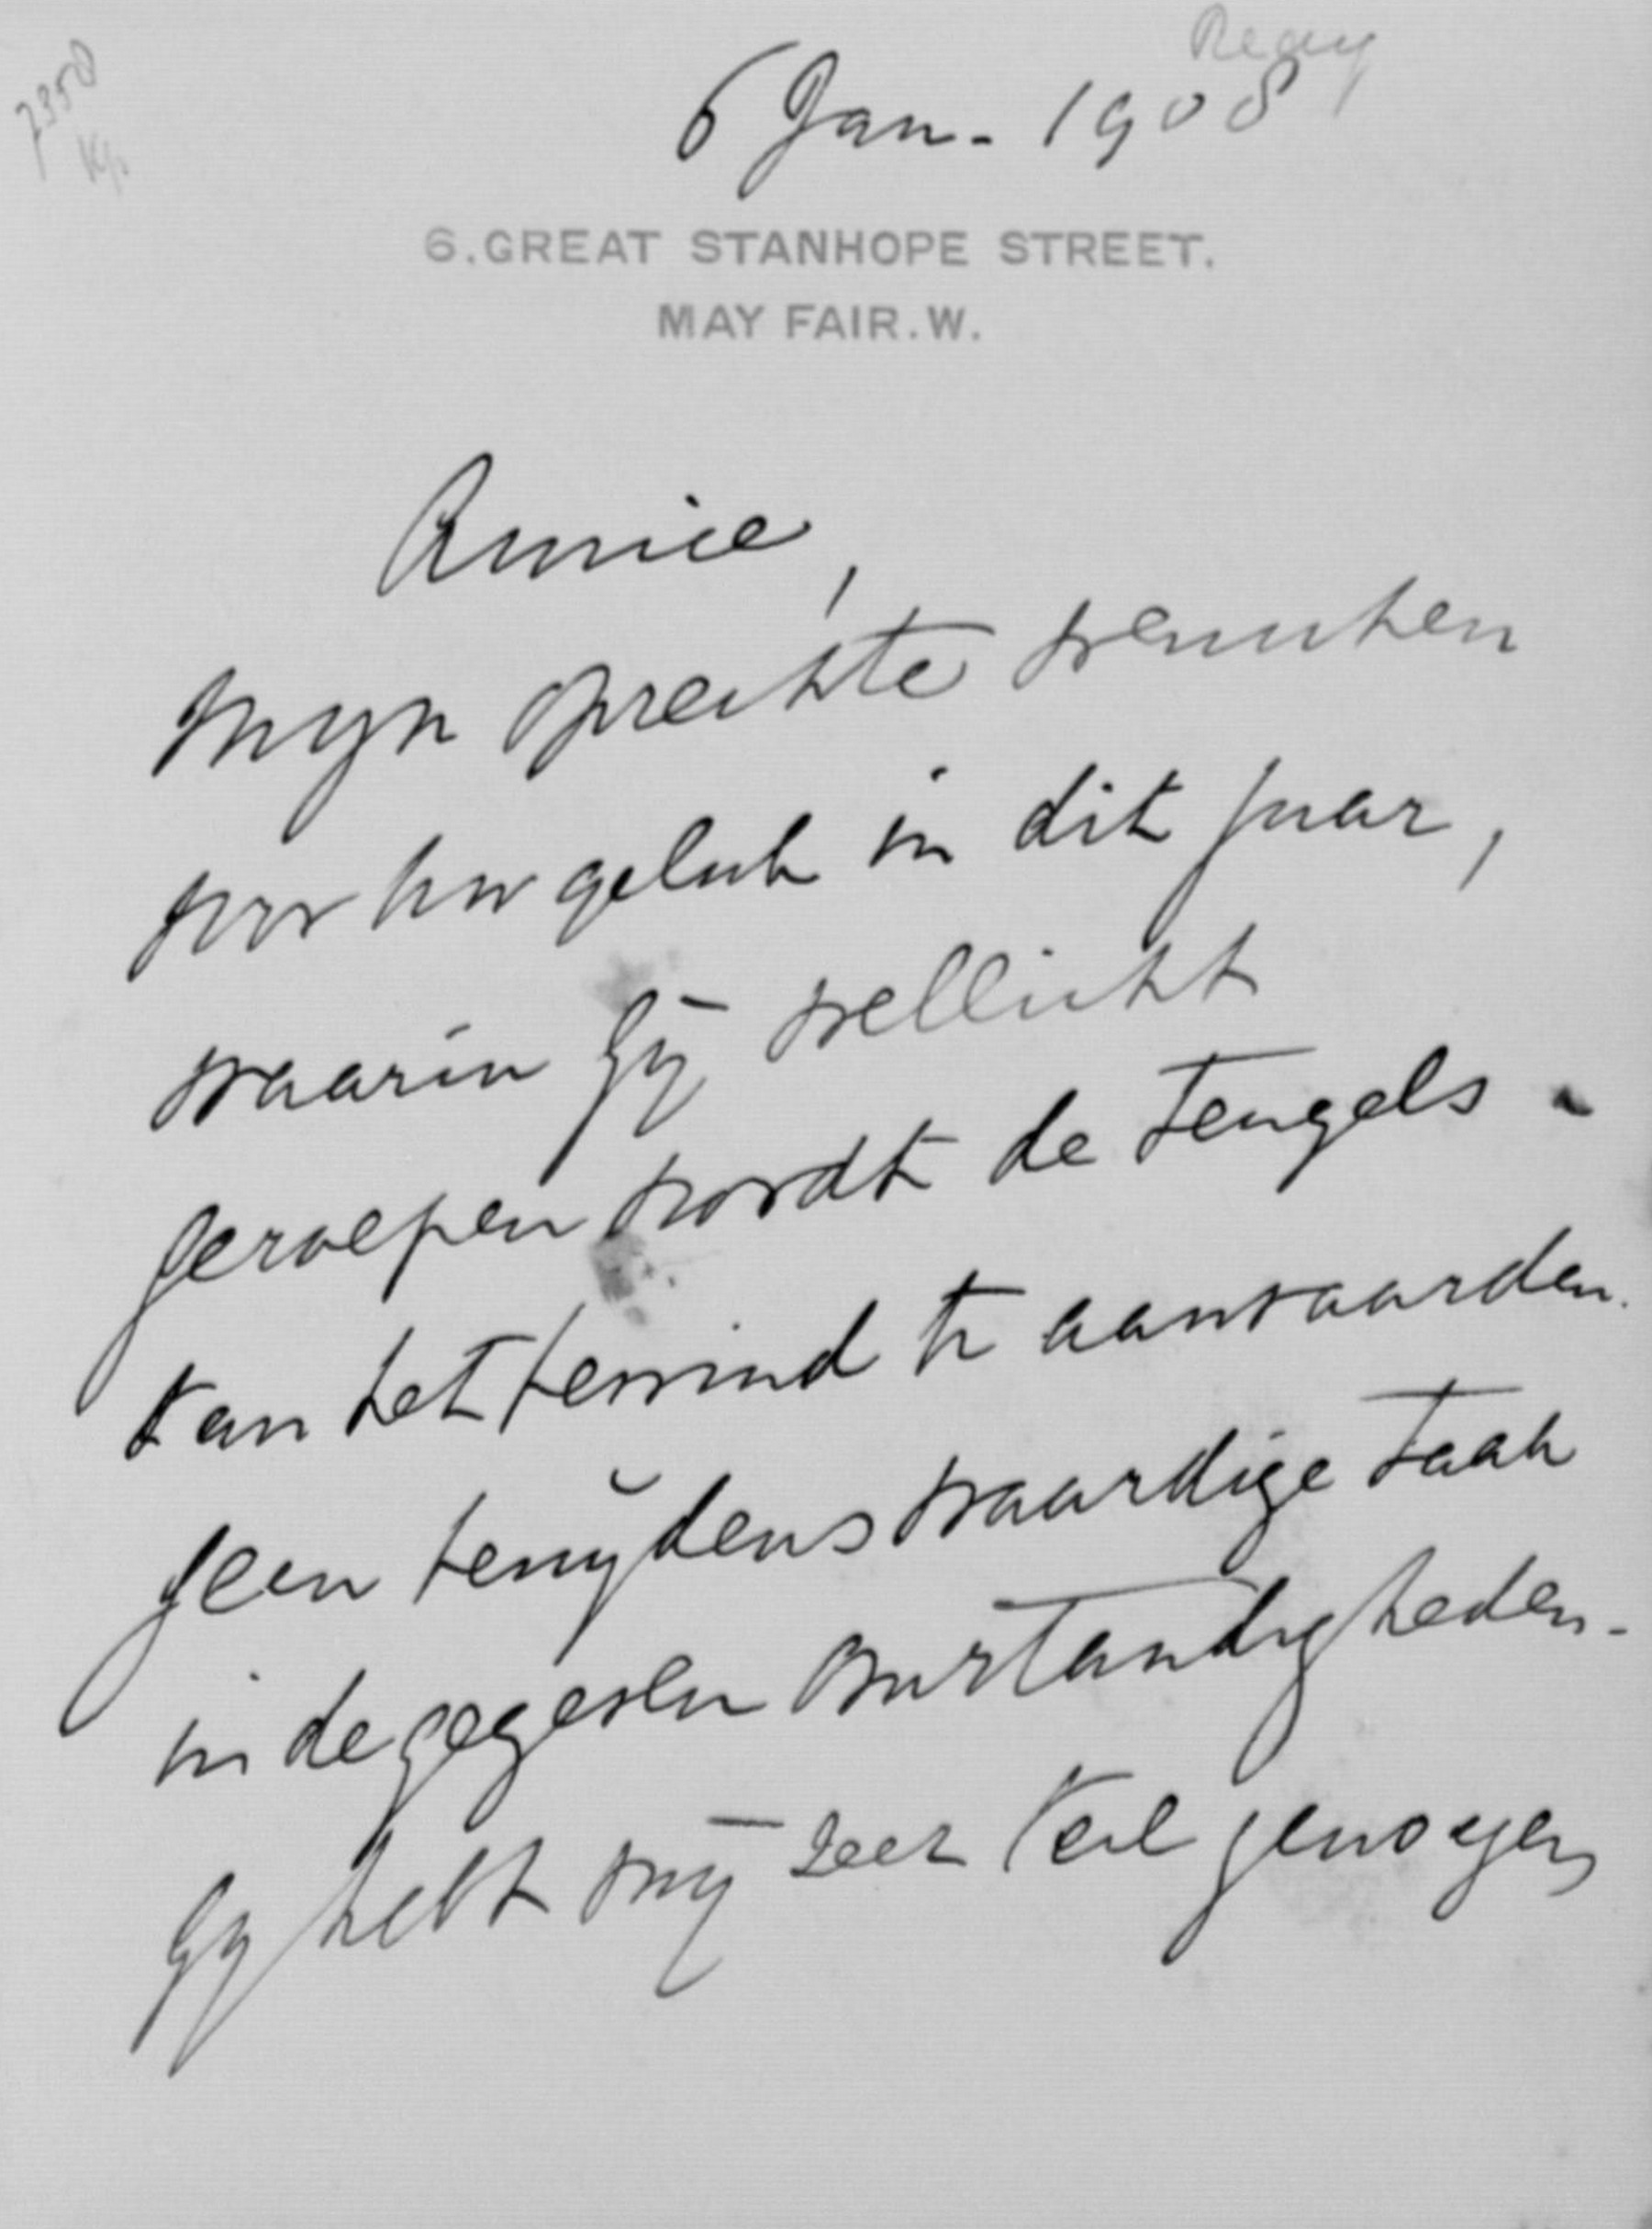 Reay
7350
Kp.
6 Jan. 1908
6. GREAT STANHOPE STREET.
MAY FAIR. W.
Amice,
Mijn oprechte wenschen
voor Uw geluk in dit jaar,
waarin Gij wellicht
geroepen wordt de teugels
van het bewind te aanvaarden.
Geen benijdenswaardige taak
in de gegeven omstandigheden.
Gij hebt mij zeer veel genoegen